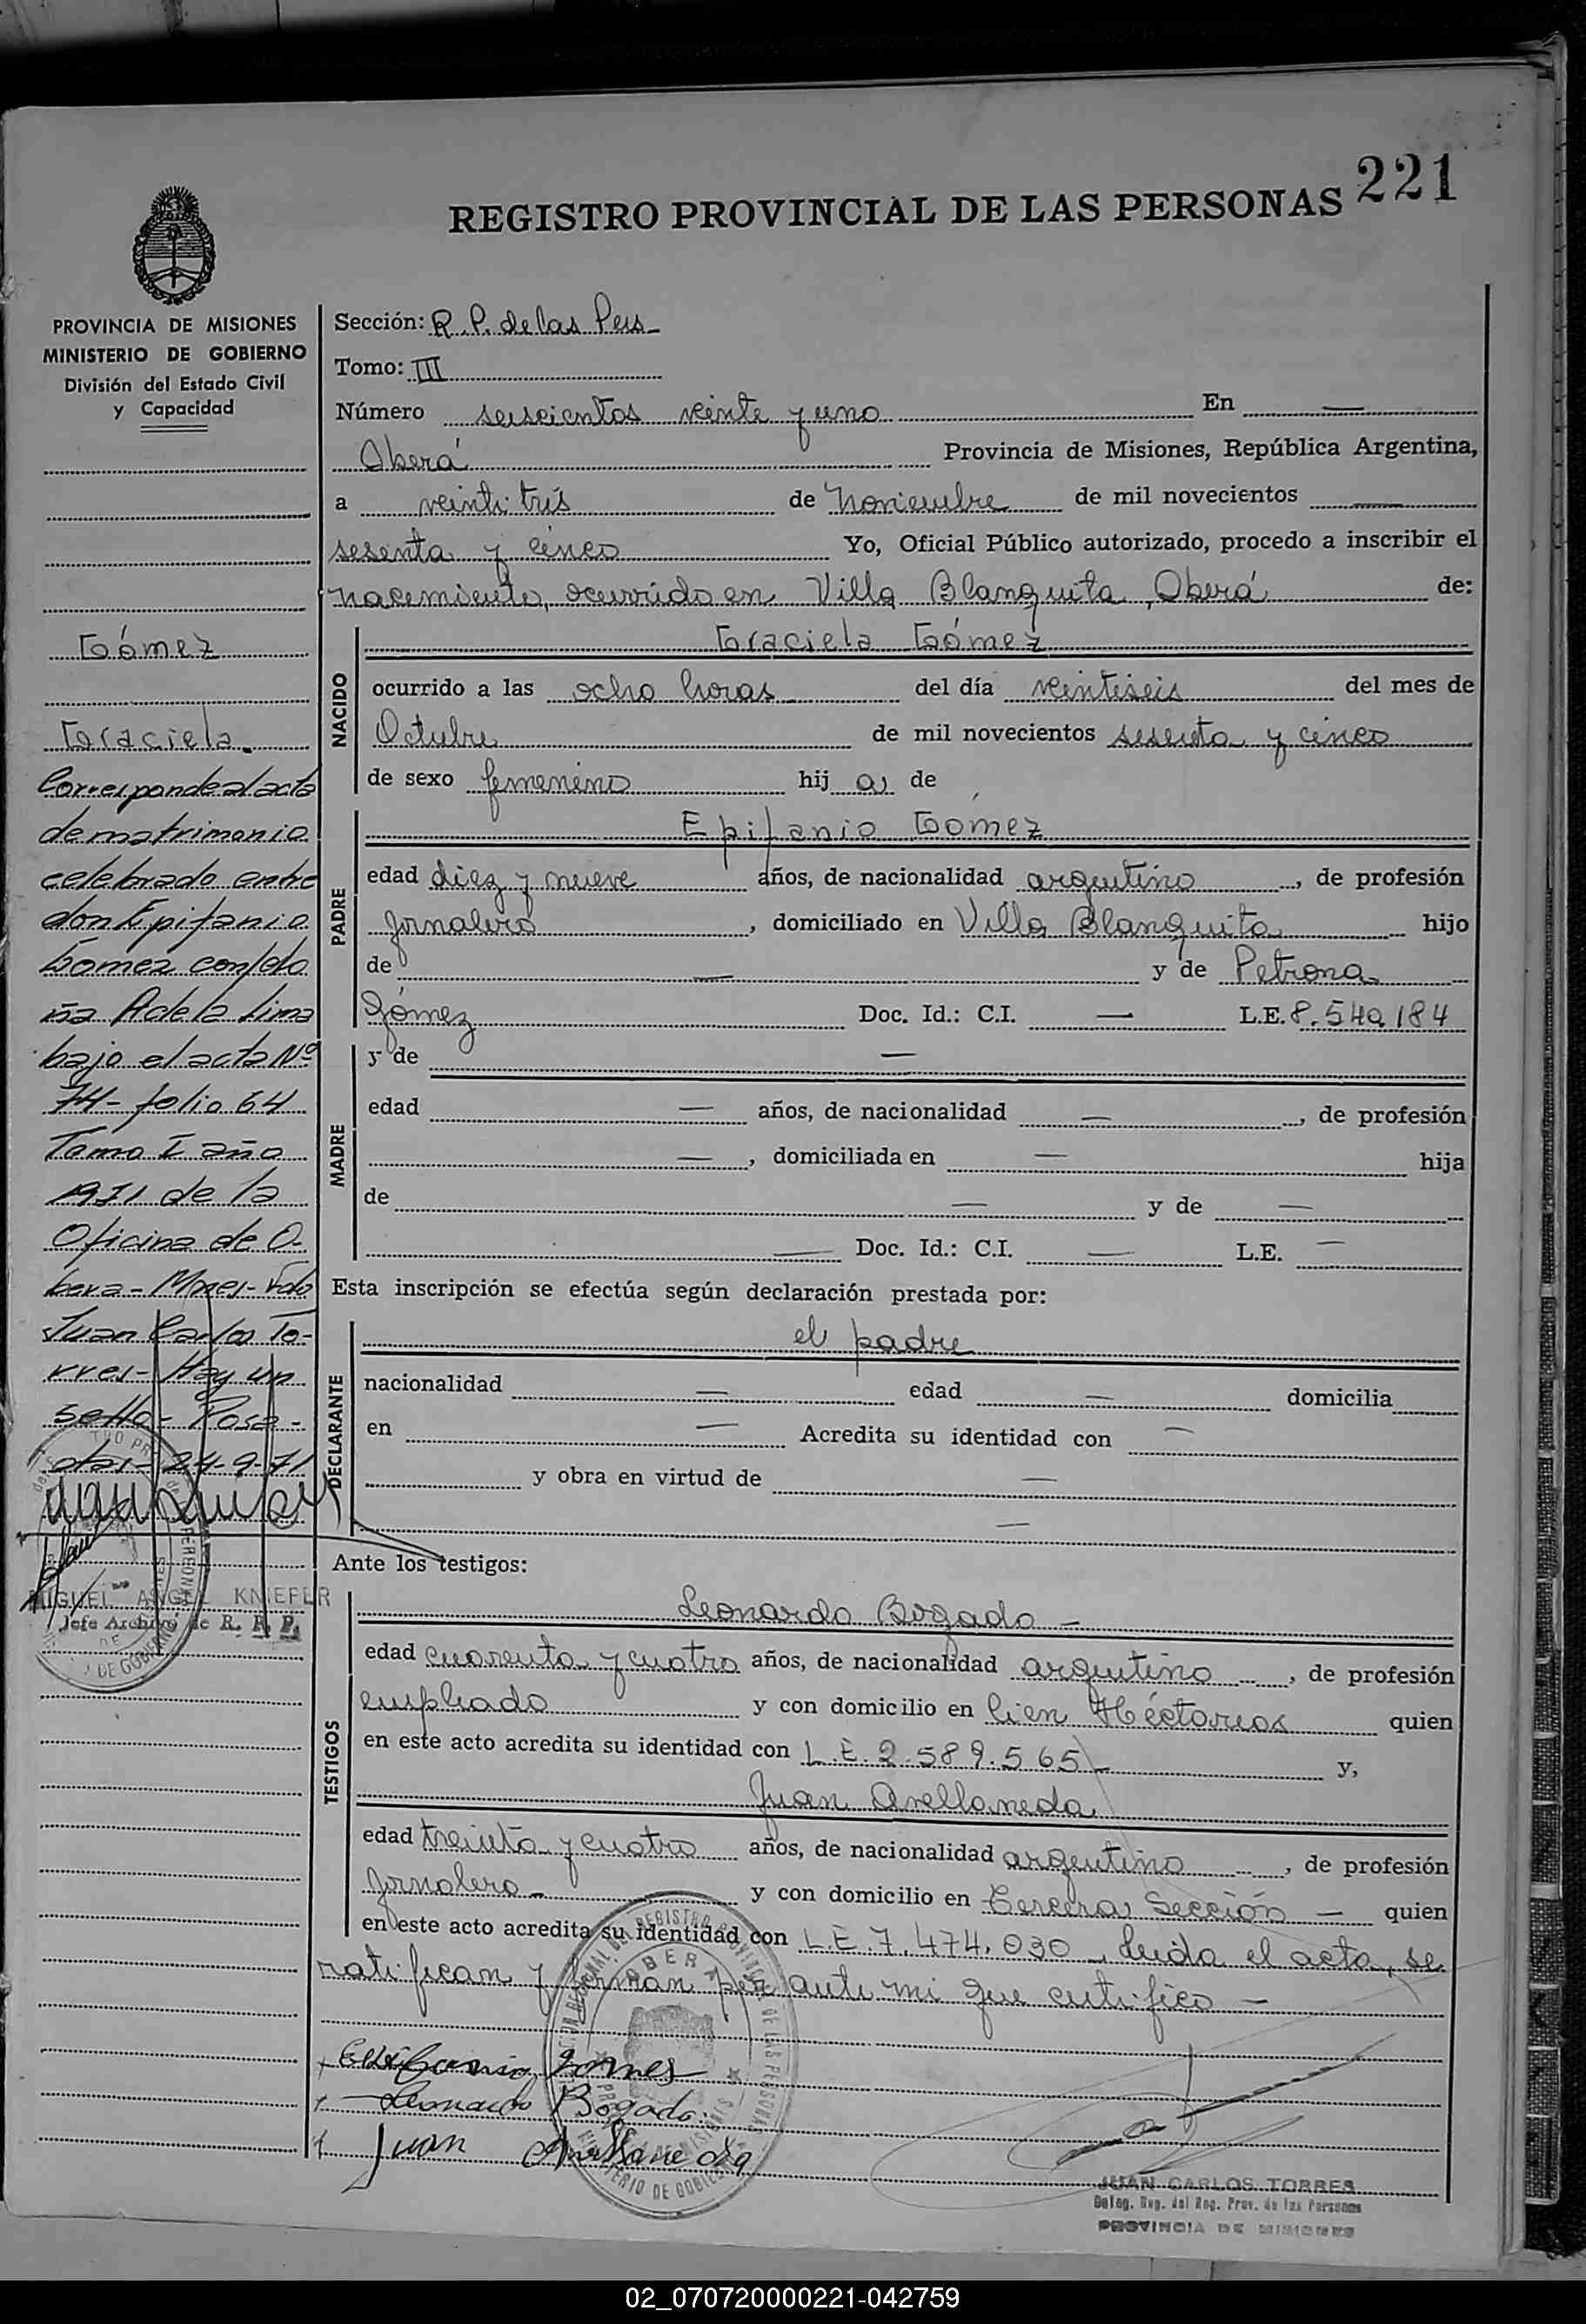 221
REGISTRO PROVINCIAL DE LAS PERSONAS
PROVINCIA DE MISIONES
MINISTERIO DE GOBIERNO
División del Estado Civil
y Capacidad
Gómez
Graciela.
Corresponde al acta
de matrimonio
celebrado entre
don Epifanio
Gomez con do
ña Adela Lima
bajo el acta Nº
74- folio 64
Tomo I año
1971 de la
Oficina de O-
bera - Mnes - Fdo
Juan Carlos To-
rres - Hay un
sello - Posa-
das - 24-9-71
MIGUEL ANGEL KNIEFER
Jefe Archivo de R. P. P.
Sección: R.P. de las Pers
Tomo: III
Número seiscientos veinte y uno En —
Oberá Provincia de Misiones, República Argentina,
a veintitrés de Noviembre de mil novecientos —
sesenta y cinco Yo, Oficial Público autorizado, procedo a inscribir el
nacimiento, ocurrido en Villa Blanquita, Oberá de:
NACIDO
Graciela Gómez
ocurrido a las ocho horas del día veintiseis del mes de
Octubre de mil novecientos sesenta y cinco
de sexo femenino hij a de
PADRE
Epifanio Gómez
edad diez y nueve años, de nacionalidad argentino, de profesión
Jornalero, domiciliado en Villa Blanquita hijo
de — y de Petrona
Gómez Doc. Id.: C.I. — L.E. 8.540.184
MADRE
y de —
edad — años, de nacionalidad —, de profesión
—, domiciliada en — hija
de — y de —
— Doc. Id.: C.I. — L.E. —
Esta inscripción se efectúa según declaración prestada por:
DECLARANTE
el padre
nacionalidad — edad — domicilia
en — Acredita su identidad con —
y obra en virtud de —
—
Ante los testigos:
TESTIGOS
Leonardo Bogado -
edad cuarenta y cuatro años, de nacionalidad argentino, de profesión
empleado y con domicilio en Cien Héctareas quien
en este acto acredita su identidad con L.E. 2.589.565 - y,
Juan Avellaneda
edad treinta y cuatro años, de nacionalidad argentino, de profesión
Jornalero - y con domicilio en Tercera Sección - quien
en este acto acredita su identidad con L.E. 7.474.030, Leída el acta, se
ratifican y firman por ante mi que certifico -
Gomes
Leonardo Bogado
Juan Avellaneda
JUAN CARLOS TORRES
Deleg. Reg. del Reg. Prov. de las Personas
PROVINCIA DE MISIONES
02_070720000221-042759